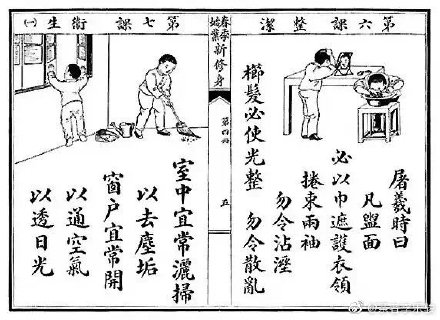 第六課 整潔
屠羲時曰
凡盥面
必以巾遮護衣領
捲束兩袖
勿令沾溼
櫛髮必使光整 勿令散亂
春季始業
新修身
第四冊
五
第七課 衛生(一)
室中宜常灑掃
以去塵垢
窗戶宜常開
以通空氣
以透日光